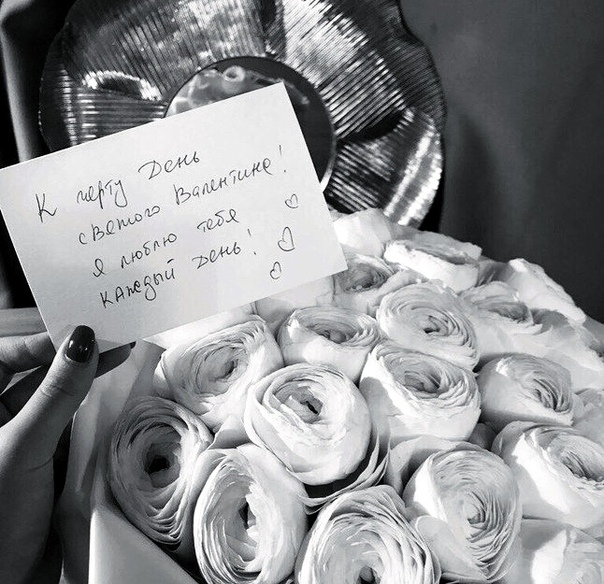 К черту День
святого Валентина!
я люблю тебя
каждый день!